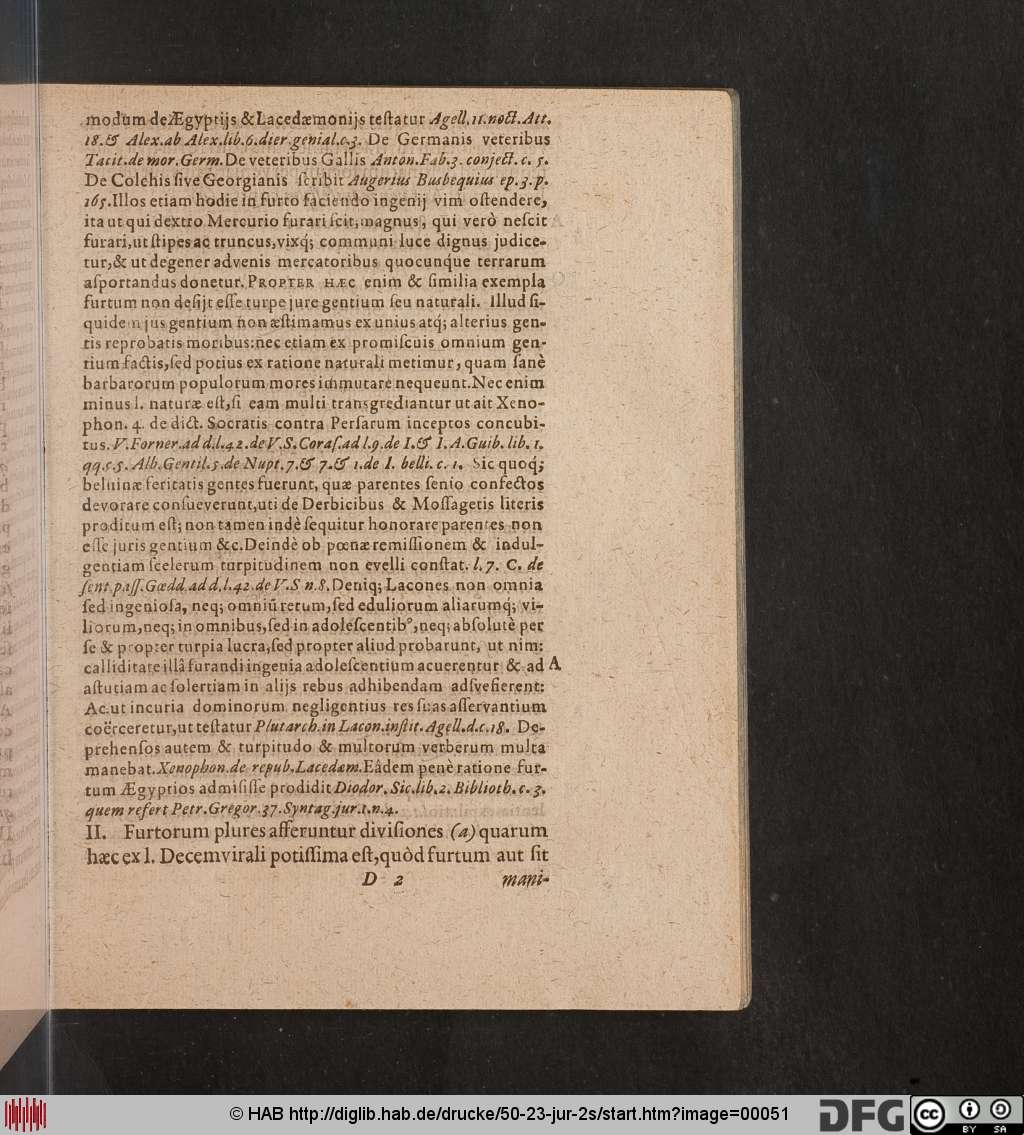 modum de Ægyptijs & Lacedæmonijs teſtatur Agell. 11. noct. Att.
18. & Alex. ab Alex. lib. 6. dier. genial. c. 3. De Germanis veteribus
Tacit. de mor. Germ. De veteribus Gallis Anton. Fab. 3. conject. c. 5.
De Colchis ſive Georgianis ſcribit Augerius Busbequius ep. 3. p.
165. Illos etiam hodie in furto faciendo ingenij vim oſtendere,
ita ut qui dextro Mercurio furari ſcit, magnus, qui verò neſcit
furari, ut ſtipes ac truncus, vixq́; communi luce dignus judice-
tur, & ut degener advenis mercatoribus quocunque terrarum
aſportandus donetur. PROPTER HÆC enim & ſimilia exempla
furtum non deſijt eſſe turpe jure gentium ſeu naturali. Illud ſi-
quidem jus gentium non æſtimamus ex unius atq́; alterius gen-
tis reprobatis moribus: nec etiam ex promiſcuis omnium gen-
tium factis, ſed potius ex ratione naturali metimur, quam ſanè
barbarorum populorum mores immutare nequeunt. Nec enim
minus l. naturæ eſt, ſi eam multi transgrediantur ut ait Xeno-
phon. 4. de dict. Socratis contra Perſarum inceptos concubi-
tus. V. Forner. ad d. l. 42. de V. S. Coraſ. ad l. 9. de I. & I. A. Guib. lib. 1.
qq. c. 5. Alb. Gentil. 5. de Nupt. 7. & 7. & 1. de I. belli. c. 1. Sic quoq́;
beluinæ feritatis gentes fuerunt, quæ parentes ſenio confectos
devorare conſueverunt, uti de Derbicibus & Moſſagetis literis
proditum eſt; non tamen indè ſequitur honorare parentes non
eſſe juris gentium &c. Deindè ob pœnæ remiſſionem & indul-
gentiam ſcelerum turpitudinem non evelli conſtat. l. 7. C. de
ſent. paſſ. Gœdd. ad d. l. 42. de V. S n. 8. Deniq; Lacones non omnia
ſed ingenioſa, neq; omniū rerum, ſed eduliorum aliarumq́; vi-
liorum, neq; in omnibus, ſed in adoleſcentibꝰ, neq; abſolutè per
ſe & propter turpia lucra, ſed propter aliud probarunt, ut nim:
calliditate illâ furandi ingenia adoleſcentium acuerentur & ad A
aſtutiam ac ſolertiam in alijs rebus adhibendam adſveſierent:
Ac ut incuria dominorum negligentius res ſuas aſſervantium
coërceretur, ut teſtatur Plutarch. in Lacon. inſtit. Agell. d. c. 18. De-
prehenſos autem & turpitudo & multorum verberum multa
manebat. Xenophon. de repub. Lacedæm. Eâdem penè ratione fur-
tum Ægyptios admiſiſſe prodidit Diodor. Sic. lib. 2. Biblioth. c. 3.
quem refert Petr. Gregor. 37. Syntag. jur. 1. n. 4.
II. Furtorum plures afferuntur diviſiones (a) quarum
hæc ex l. Decemvirali potiſſima eſt, quòd furtum aut ſit
D 2 mani-
© HAB http://diglib.hab.de/drucke/50-23-jur-2s/start.htm?image=00051
DFG
cc BY SA